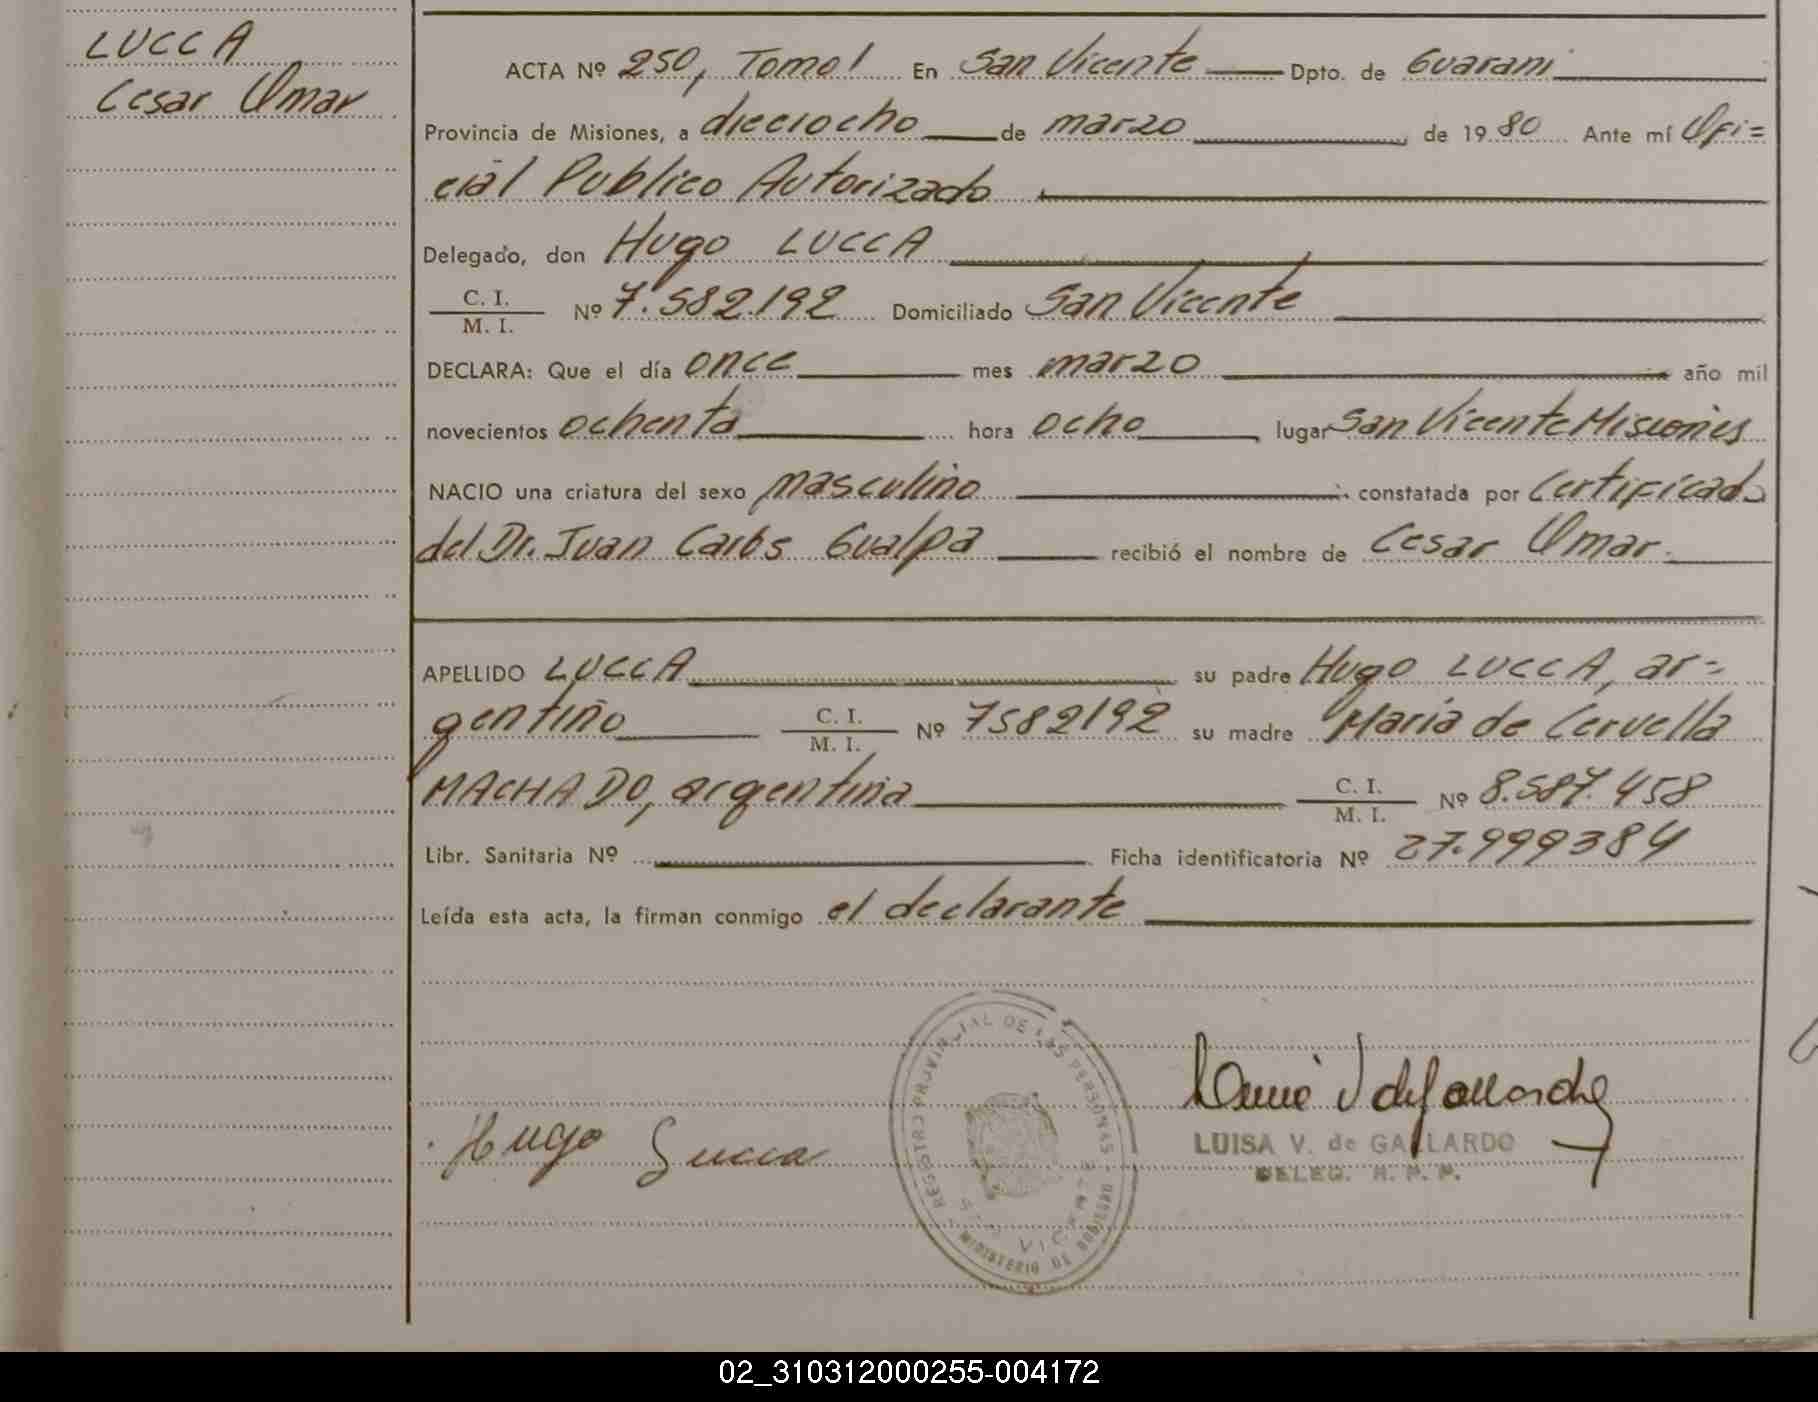 LUCCA
Cesar Omar
ACTA Nº 250, Tomo I En San Vicente Dpto. de Guarani
Provincia de Misiones, a dieciocho de marzo de 1980 Ante mí Ofi=
cial Publico Autorizado
Delegado, don Hugo LUCCA
C. I.
M. I. Nº 7.582.192 Domiciliado San Vicente
DECLARA: Que el día once mes marzo año mil
novecientos ochenta hora ocho lugar San Vicente Misiones
NACIO una criatura del sexo masculino constatada por Certificado
del Dr. Juan Carlos Gualpa recibió el nombre de Cesar Omar.
APELLIDO LUCCA su padre Hugo LUCCA, ar=
gentino C. I. M. I. Nº 7582192 su madre María de Cervella
MACHADO, argentina C. I. M. I. Nº 8.587.458
Libr. Sanitaria Nº Ficha identificatoria Nº 27.999384
Leída esta acta, la firman conmigo el declarante
REGISTRO PROVINCIAL DE LAS PERSONAS
SAN VICENTE
MINISTERIO DE GOBIERNO
Hugo Lucca
LUISA V. de GALLARDO
DELEG. R. P. P.
02_310312000255-004172